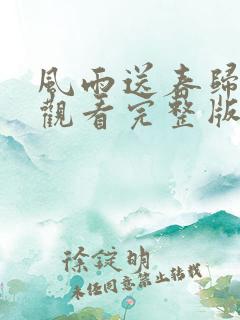 風雨送春歸
觀看完整版
徐錠明
未经同意禁止转载